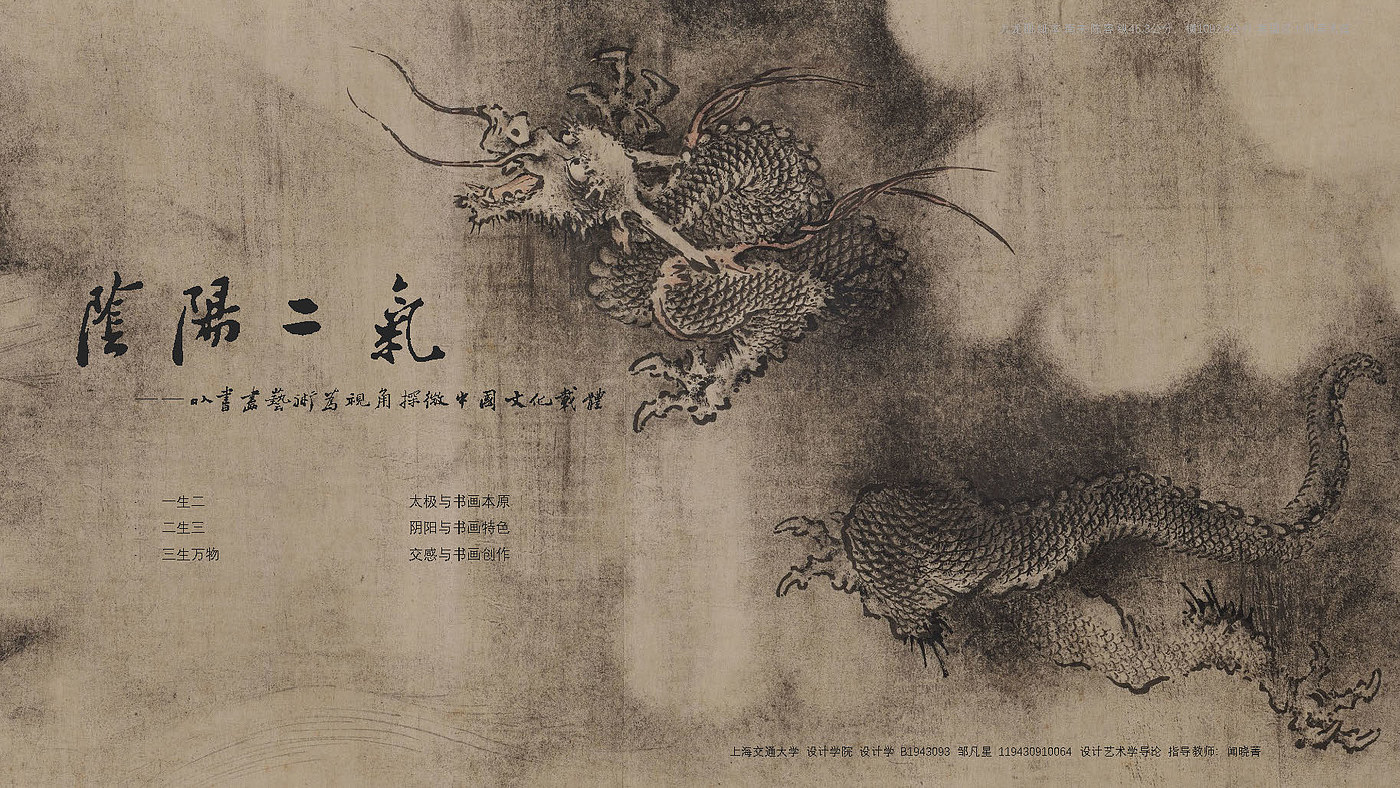 陰陽二氣
——以書畫藝術為視角探微中國文化載體
一生二
太极与书画本原
二生三
阴阳与书画特色
三生万物
交感与书画创作
上海交通大学 设计学院 设计学 B1943093 邹凡星 119430910064 设计艺术学导论 指导教师: 闻晓菁